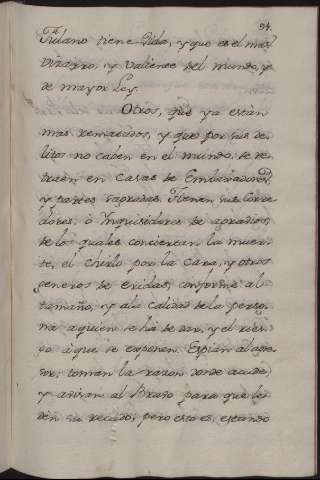 94.
Fulano tiene Vida, y que es el mas
vizarro, y valiente del mundo, y
de mayor Ley.
Otros, que ya están
mas rematados, y que por sus de-
litos no caben en el mundo, se re-
traen en Casas de Embajadores
y partes sagradas. Tienen sus Corre-
dores, ò Ynquisidores de agravios,
de los quales conciertan la muer-
te, el chirlo por la cara, y otros
generos de eridas, conforme al
tamaño, y ala Calidad dela perso-
na aquien se há de dar, y el ries-
go aque se exponen. Espian al agre-
sor; toman la razon donde acude,
y avisan al Brazo para que le
den su recado; pero esto es, estando